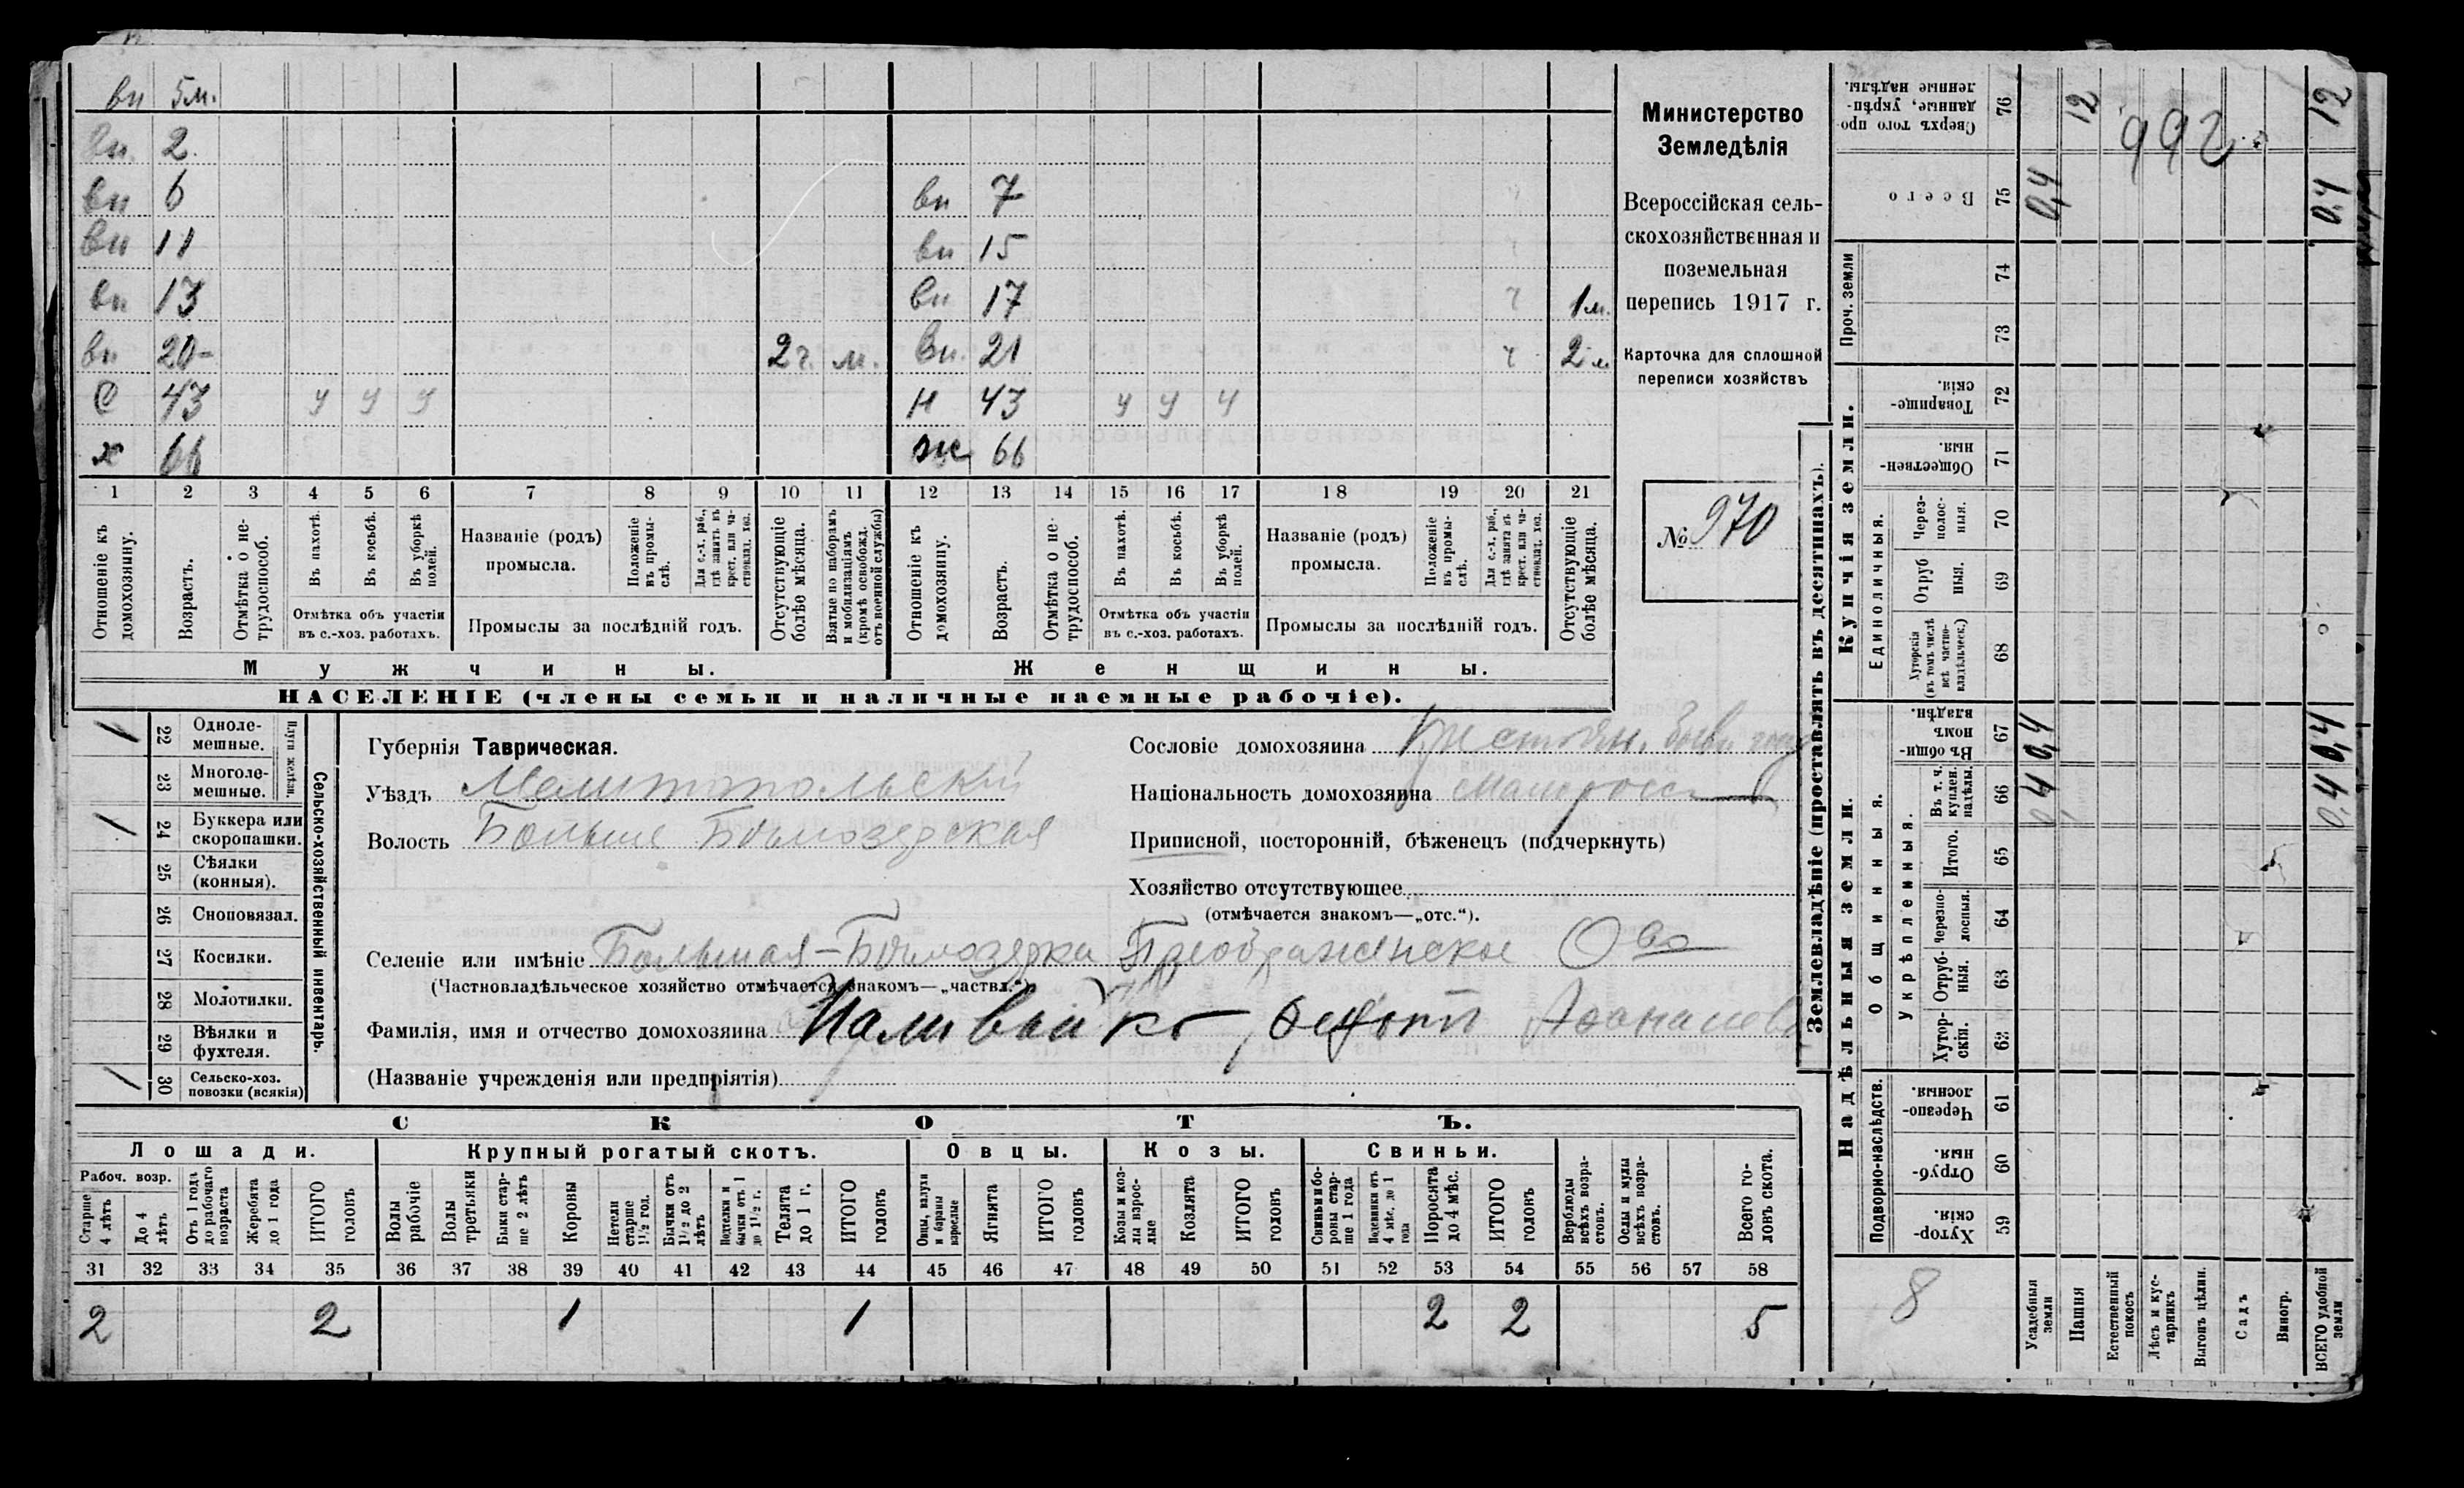 вн 5м.
вн. 2.
вн 6 вн 7
вн 11 вн 15
вн 13 вн 17 ч 1м.
вн 20- 2г. м. вн. 21 ч 2м
С 43 у у у н 43 у у у
х 66 ж 66
1 2 3 4 5 6 7 8 9 10 11 12 13 14 15 16 17 18 19 20 21
Отношеніе къ домохозяину.
Возрастъ.
Отмѣтка о не-трудоспособ.
Въ пахотѣ.
Въ косьбѣ.
Въ уборкѣ полей.
Отмѣтка объ участіи
въ с.-хоз. работахъ.
Названіе (родъ)
промысла.
Положеніе въ промы-слѣ.
Для с.-х. раб., гдѣ занятъ въ крест. или ча-стновлад. хоз.
Промыслы за послѣдній годъ.
Отсутствующіе болѣе мѣсяца.
Взятые по наборамъ и мобилизаціямъ (кромѣ освобожд. отъ военной службы)
Отношеніе къ домохозяину.
Возрастъ.
Отмѣтка о не-трудоспособ.
Въ пахотѣ.
Въ косьбѣ.
Въ уборкѣ полей.
Отмѣтка объ участіи
въ с.-хоз. работахъ.
Названіе (родъ)
промысла.
Положеніе въ промы-слѣ.
Для с.-х. раб., гдѣ занята въ крест. или ча-стновлад. хоз.
Промыслы за послѣдній годъ.
Отсутствующіе болѣе мѣсяца.
Мужчины. Женщины.
НАСЕЛЕНІЕ (члены семьи и наличные наемные рабочіе).
Министерство
Земледѣлія
Всероссійская сель-
скохозяйственная и
поземельная
перепись 1917 г.
Карточка для сплошной
переписи хозяйствъ
№ 970
1 22 Одноле-мешные.
23 Многоле-мешные.
Плуги желѣзн.
1 24 Буккера или скоропашки.
25 Сѣялки (конныя).
26 Сноповязал.
27 Косилки.
28 Молотилки.
29 Вѣялки и фухтеля.
1 30 Сельско-хоз. повозки (всякія)
Сельско-хозяйственный инвентарь.
Губернія Таврическая.
Уѣздъ Мелитопольскій
Волость Больше Бѣлозерская
Сословіе домохозяина Крестьян. бывш
Національность домохозяина малоросс
Приписной, посторонній, бѣженецъ (подчеркнуть)
Хозяйство отсутствующее
(отмѣчается знакомъ—„отс.“).
Селеніе или имѣніе Большая-Бѣлозерка Преображенское О во
(Частновладѣльческое хозяйство отмѣчается знакомъ—„частвл.“)
Фамилія, имя и отчество домохозяина Наливайко Ѳедотъ
(Названіе учрежденія или предпріятія)
СКОТЪ.
Лошади. Крупный рогатый скотъ. Овцы. Козы. Свиньи.
Рабоч. возр.
Старше 4 лѣтъ
До 4 лѣтъ
Отъ 1 года до рабочаго возраста
Жеребята до 1 года
ИТОГО головъ
Волы рабочіе
Волы третьяки
Быки стар-ше 2 лѣтъ
Коровы
Нетели старше 1½ год.
Бычки отъ 1½ до 2 лѣтъ
Подтелки и бычки отъ 1 до 1½ г.
Телята до 1 г.
ИТОГО головъ
Овцы, валухи и бараны взрослые
Ягнята
ИТОГО головъ
Козы и коз-лы взрос-лые
Козлята
ИТОГО головъ
Свиньи и бо-ровы стар-ше 1 года
Подсвинки отъ 4 мѣс. до 1 года
Поросята до 4 мѣс.
ИТОГО головъ
Верблюды всѣхъ возра-стовъ.
Ослы и мулы всѣхъ возра-стовъ.
Всего го-ловъ скота.
31 32 33 34 35 36 37 38 39 40 41 42 43 44 45 46 47 48 49 50 51 52 53 54 55 56 57 58
2 2 1 1 2 2 5
Землевладѣніе (проставлять въ десятинахъ).
Сверхъ того про-данные, укрѣп-ленные надѣлы. 76 12 12
992
Всего 75 0,4 0,4
Проч. земли
74
73
Купчія земли.
Товарище-скія. 72
Обществен-ныя. 71
Единоличныя.
Через-полос-ныя. 70
Отруб ныя. 69
Хуторскія (въ томъ числѣ всѣ частно-владѣльческ.) 68
Надѣльныя земли.
Общинныя.
Въ общи-номъ владѣн. 67 0,4 0,4
Укрѣпленныя.
Въ т. ч. куплен. надѣлы. 66
Итого. 65
Черезпо-лосныя. 64
Отруб-ныя. 63
Хутор-скія. 62
Подворно-наслѣдств.
Черезпо-лосныя 61
Отруб-ныя 60
Хутор-скія. 59
8
Усадебныя земли
Пашня
Естественный покосъ
Лѣсъ и кус-тарникъ
Выгонъ цѣлин.
Садъ
Виногр.
ВСЕГО удобной земли